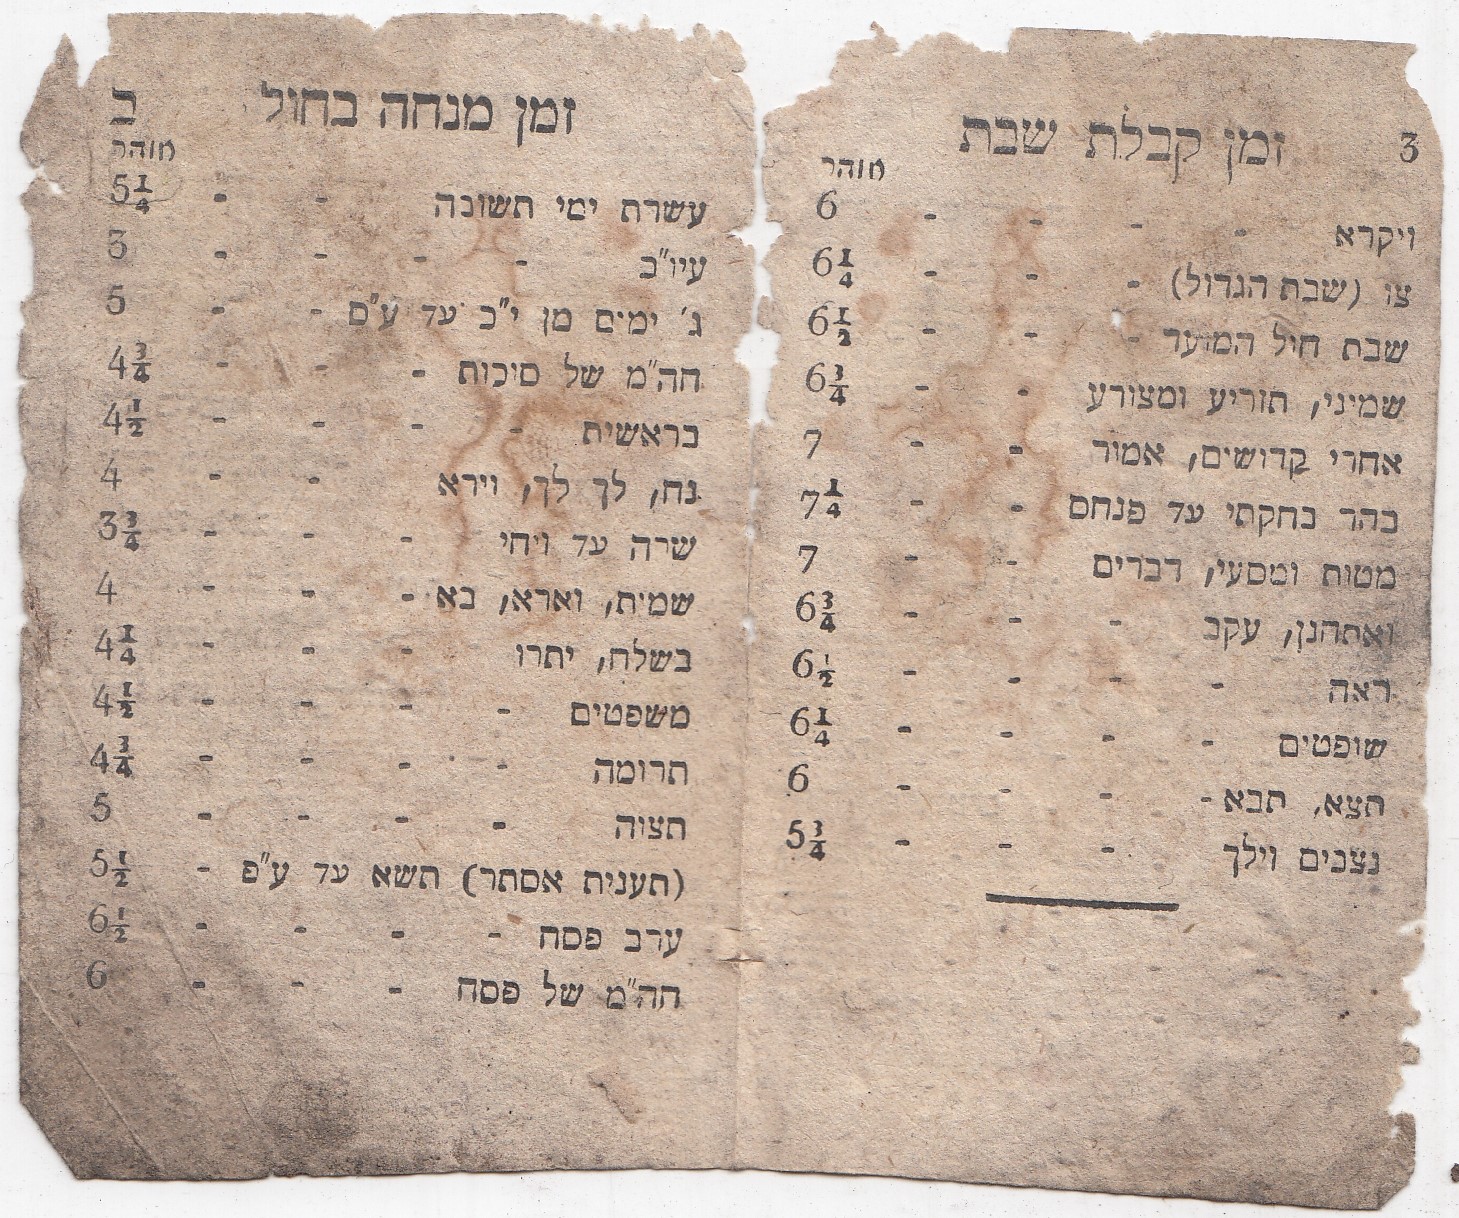 3 זמן קבלת שבת
אוהר
ויקרא - - - - 6
צו (שבת הגדול) - - - 6¼
שבת חול המועד - - - 6½
שמיני, תזריע ומצורע - - 6¾
אחרי קדושים, אמור - - 7
בהר בחקתי עד פנחס - - 7¼
מטות ומסעי, דברים - - 7
ואתחנן, עקב - - - 6¾
ראה - - - - 6½
שופטים - - - - 6¼
תצא, תבא - - - - 6
נצבים וילך - - - 5¾
זמן מנחה בחול ב
אוהר
עשרת ימי תשובה - - 5¼
עיו"כ - - - - 3
ג' ימים מן י"כ עד ע"ס - - 5
חה"מ של סיכות - - - 4¾
בראשית - - - - 4½
נח, לך לך, וירא - - 4
שרה עד ויחי - - - 3¾
שמות, וארא, בא - - - 4
בשלח, יתרו - - - 4¼
משפטים - - - - 4½
תרומה - - - - 4¾
תצוה - - - - 5
(תענית אסתר) תשא עד ע"פ - 5½
ערב פסח - - - - 6½
חה"מ של פסח - - - 6